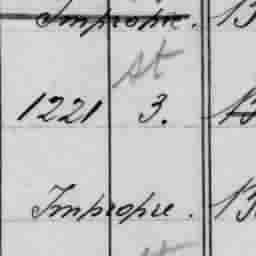 Impropre. 13
st
1221 3. 13
Impropre. 13
st